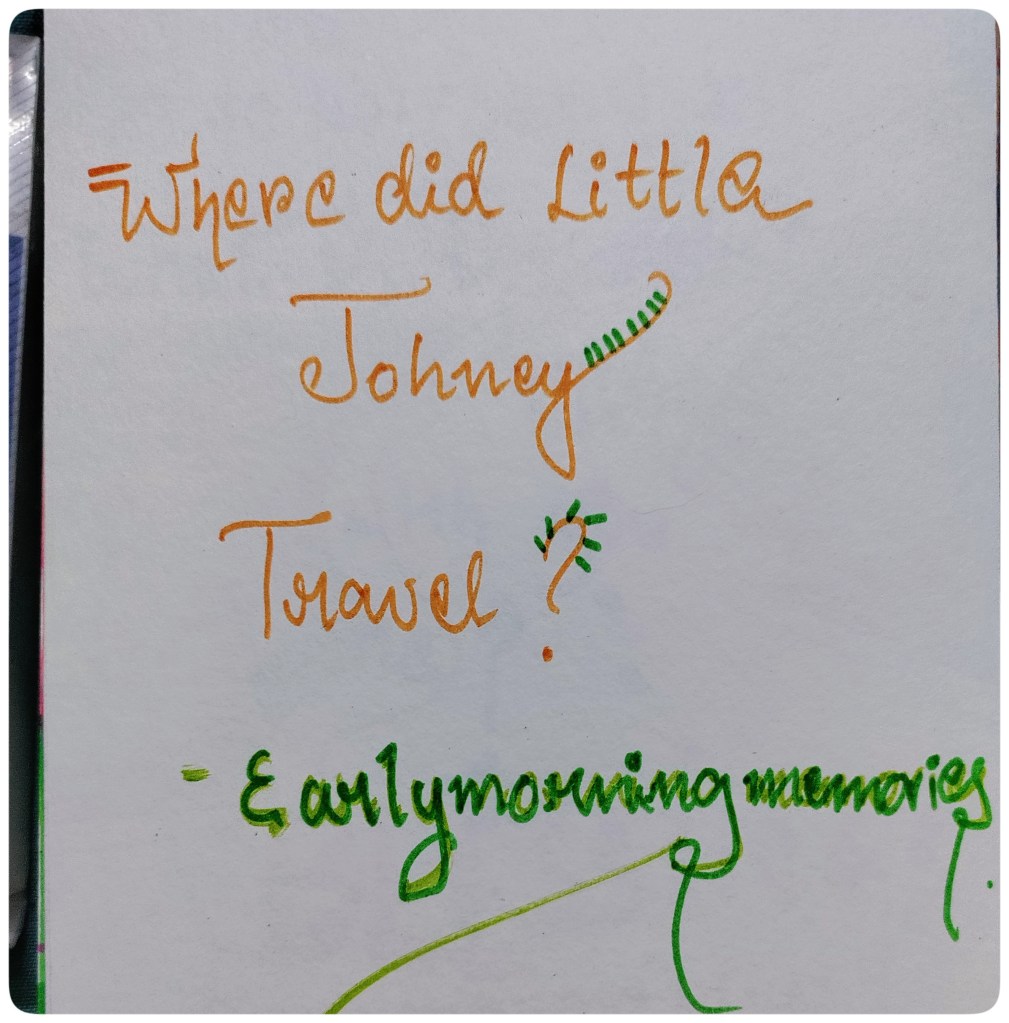 Where did Little
Johney
Travel ?
- Earlymorning memories